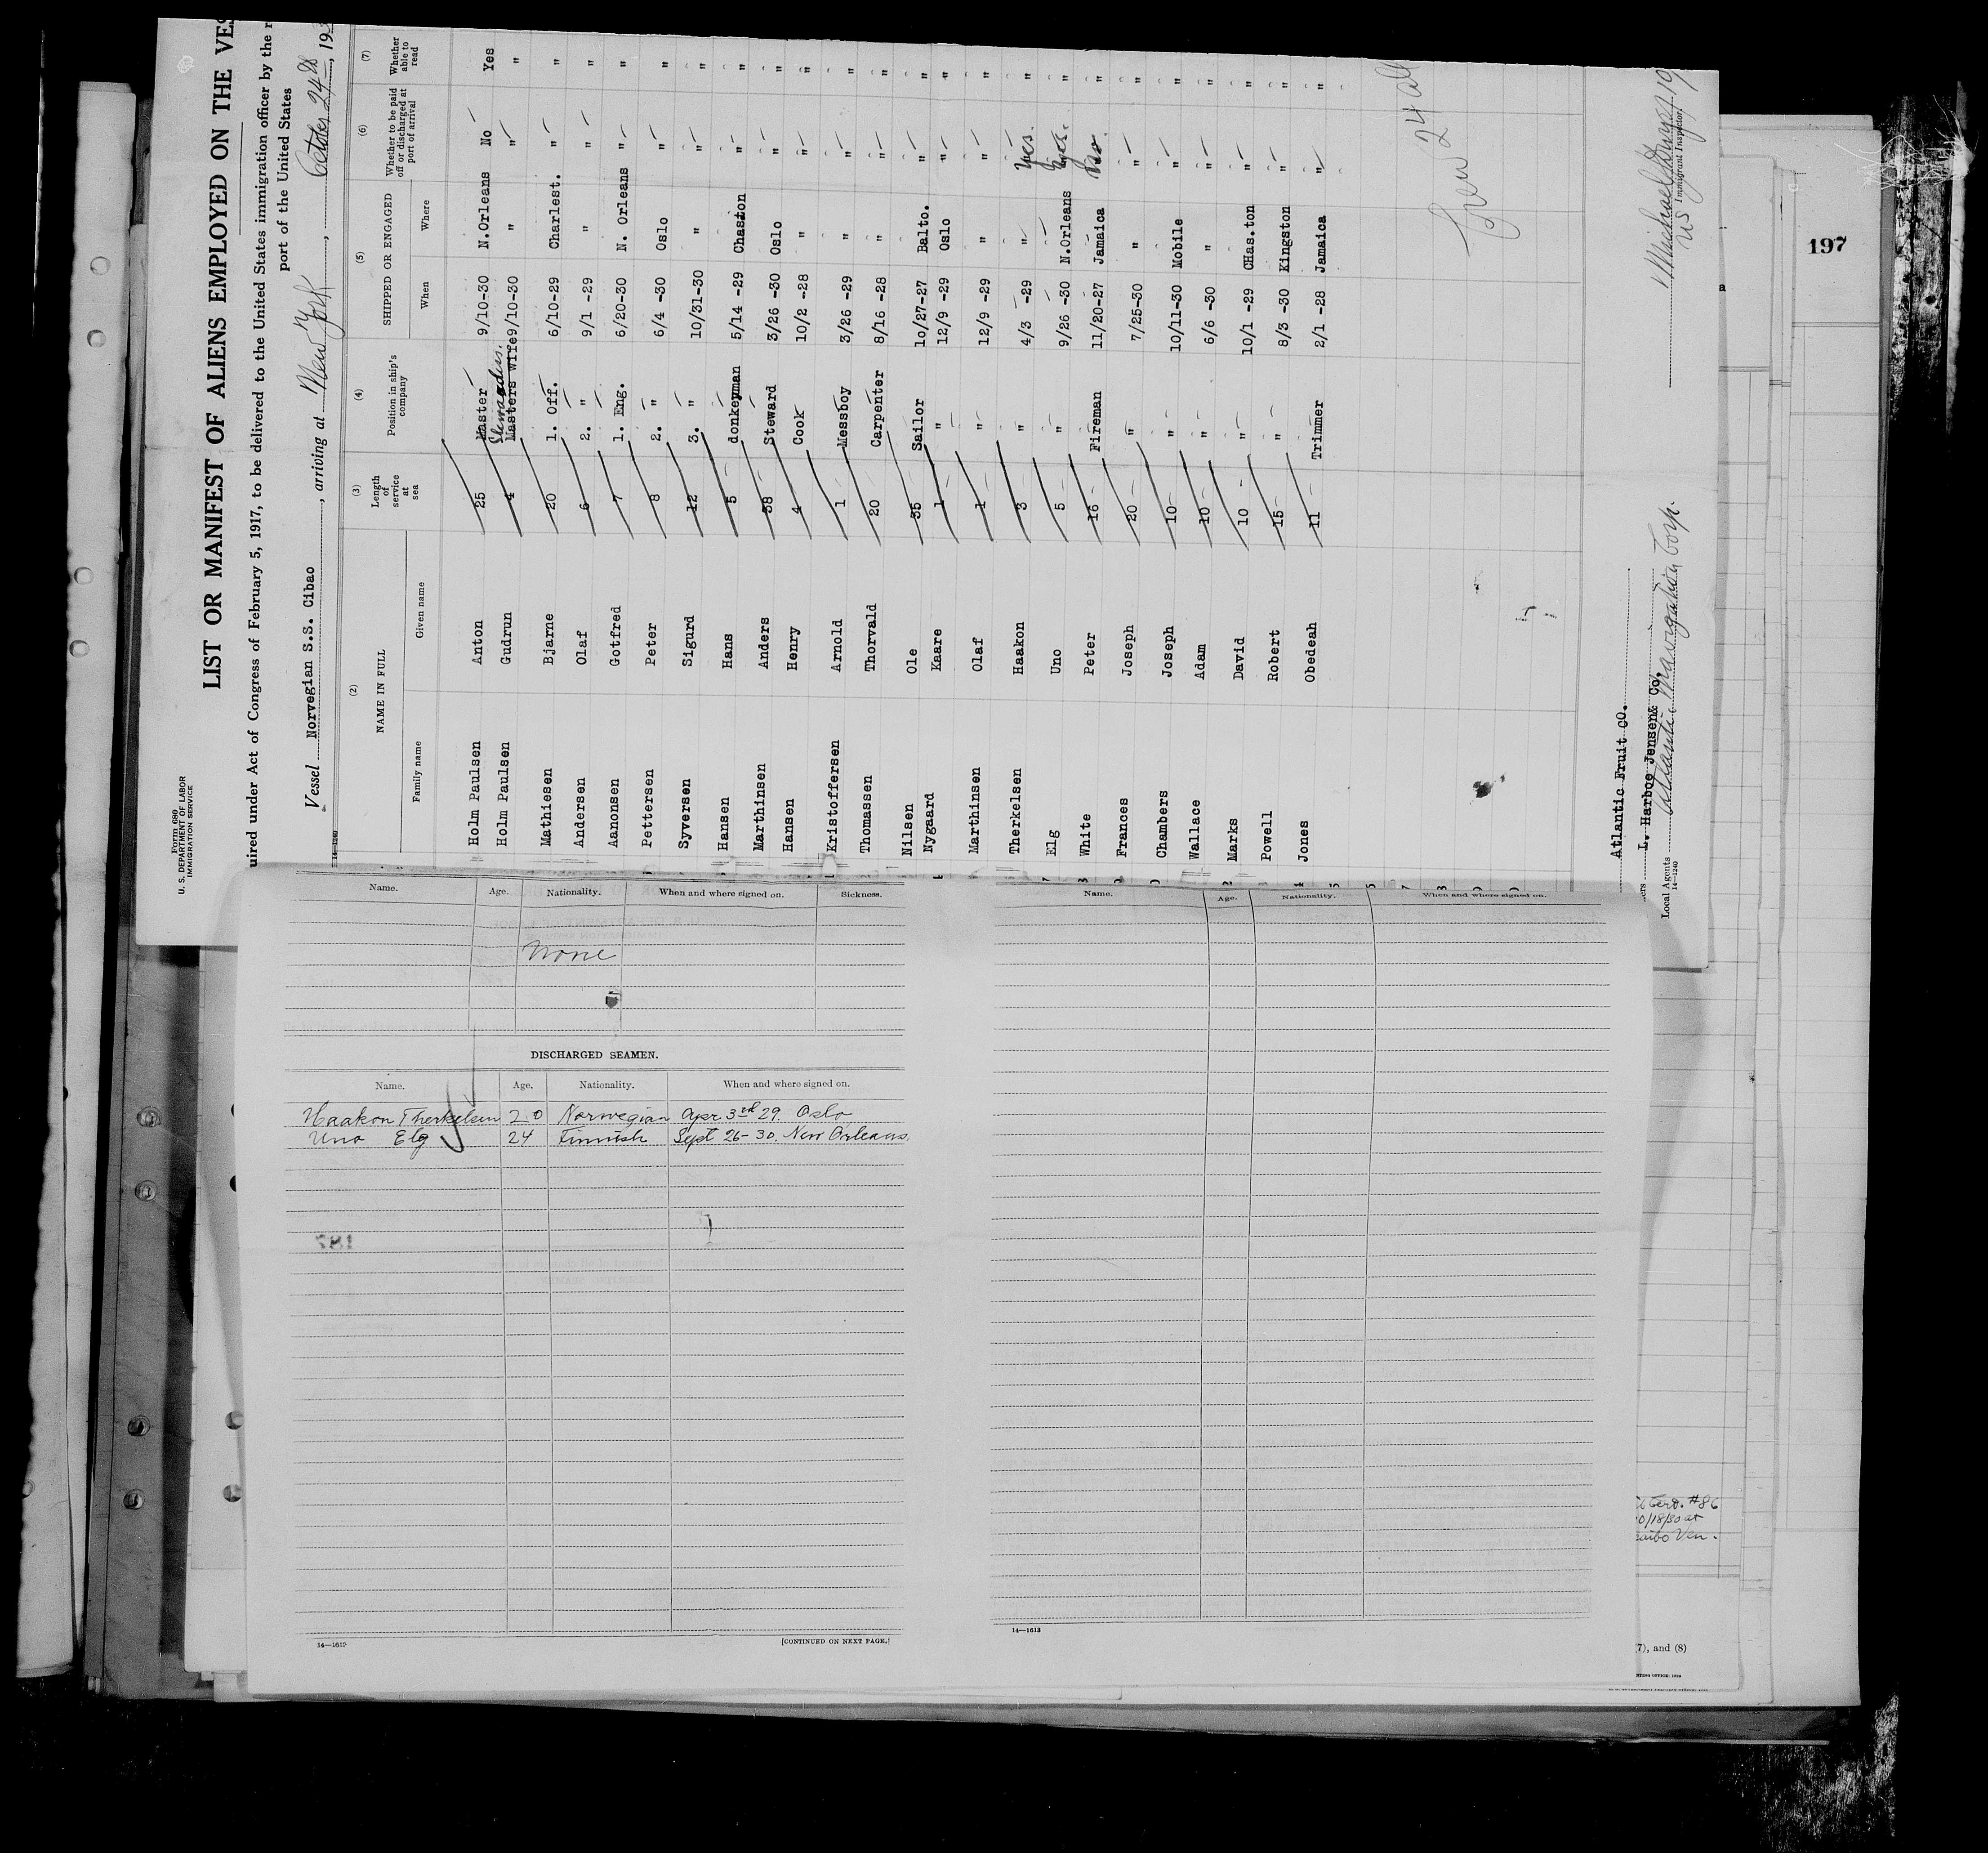 Form 680
U. S. DEPARTMENT OF LABOR
IMMIGRATION SERVICE
LIST OR MANIFEST OF ALIENS EMPLOYED ON THE VES
uired under Act of Congress of February 5, 1917, to be delivered to the United States immigration officer by the r
port of the United States
Vessel Norwegian S.S. Cibao, arriving at New York, October 24th, 193
(2) (3) (4) (5) (6) (7)
NAME IN FULL Length of service at sea Position in ship's company SHIPPED OR ENGAGED Whether to be paid off or discharged at port of arrival Whether able to read
Family name Given name When Where
Holm Paulsen Anton 25 Master 9/10-30 N.Orleans No Yes
Stewardess.
Holm Paulsen Gudrun 4 Masters Wife 9/10-30 " " "
Mathiesen Bjarne 20 1. Off. 6/10-29 Charlest. " "
Andersen Olaf 6 2. " 9/1 -29 " " "
Aanonsen Gotfred 7 1. Eng. 6/20-30 N. Orleans " "
Pettersen Peter 8 2. " 6/4 -30 Oslo " "
Syversen Sigurd 12 3. " 10/31-30 " " "
Hansen Hans 5 donkeyman 5/14 -29 Chaston " "
Marthinsen Anders 38 Steward 3/26 -30 Oslo " "
Hansen Henry 4 Cook 10/2 -28 " " "
Kristoffersen Arnold 1 Messboy 3/26 -29 " " "
Thomassen Thorvald 20 Carpenter 8/16 -28 " " "
Nilsen Ole 35 Sailor 10/27-27 Balto. " "
Nygaard Kaare 1 " 12/9 -29 Oslo " "
Marthinsen Olaf 1 " 12/9 -29 " " "
Therkelsen Haakon 3 " 4/3 -29 " Yes. "
Elg Uno 5 " 9/26 -30 N.Orleans Yes. "
White Peter 16 Fireman 11/20-27 Jamaica No. "
Frances Joseph 20 " 7/25-30 " " "
Chambers Joseph 10 " 10/11-30 Mobile " "
Wallace Adam 10 " 6/6 -30 " " "
Marks David 10 " 10/1 -29 CHas.ton " "
Powell Robert 15 " 8/3 -30 Kingston " "
Jones Obedeah 11 Trimmer 2/1 -28 Jamaica " "
Crew 24 all
Atlantic Fruit CO.
L. Harboe Jensen & Co.
Local Agents Atlantic Navigation Corp.
14—1240
Immigrant Inspector.
197
Name. Age. Nationality. When and where signed on. Sickness.
None
DISCHARGED SEAMEN.
Name. Age. Nationality. When and where signed on.
Haakon Therkelsen 20 Norwegian Apr 3rd 29. Oslo
Uno Elg 24 Finnish Sept 26-30. New Orleans.
14—1612
[CONTINUED ON NEXT PAGE.]
Name. Age. Nationality. When and where signed on.
14—1613
#86
10/18/30 at
Ven.
(7), and (8)